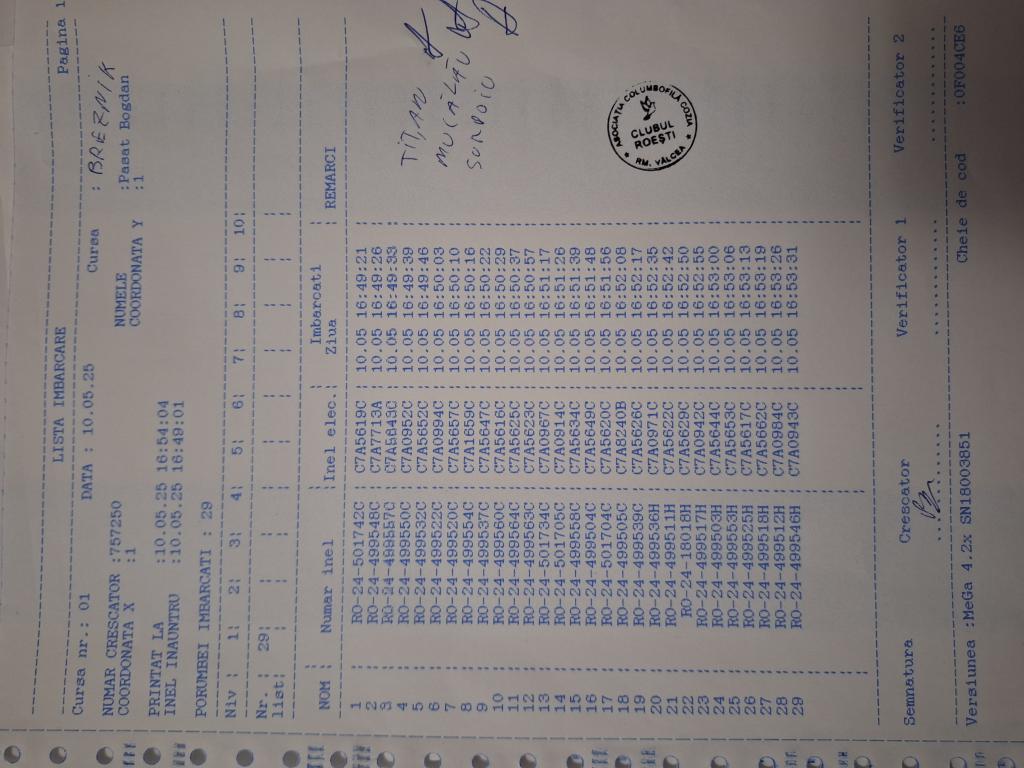 Pagina 1
LISTA IMBARCARE
Cursa nr.: 01 DATA : 10.05.25 Cursa : BREZNIK
NUMAR CRESCATOR :757250 NUMELE :Pasat Bogdan
COORDONATA X :1 COORDONATA Y :1
PRINTAT LA :10.05.25 16:54:04
INEL INAUNTRU :10.05.25 16:49:01
PORUMBEI IMBARCATI : 29
Niv : 1: 2: 3: 4: 5: 6: 7: 8: 9: 10:
Nr. : 29: : : : : : : : : :
list: : : : : : : : : : :
NOM : Numar inel :Inel elec.: Imbarcati Ziua : REMARCI
1 : RO-24-501742C : C7A5619C : 10.05 16:49:21 :
2 : RO-24-499548C : C7A7713A : 10.05 16:49:26 :
3 : RO-24-499557C : C7A5643C : 10.05 16:49:33 :
4 : RO-24-499550C : C7A0952C : 10.05 16:49:39 :
5 : RO-24-499532C : C7A5652C : 10.05 16:49:46 :
6 : RO-24-499522C : C7A0994C : 10.05 16:50:03 :
7 : RO-24-499520C : C7A5657C : 10.05 16:50:10 :
8 : RO-24-499554C : C7A1659C : 10.05 16:50:16 :
9 : RO-24-499537C : C7A5647C : 10.05 16:50:22 :
10 : RO-24-499560C : C7A5616C : 10.05 16:50:29 :
11 : RO-24-499564C : C7A5625C : 10.05 16:50:37 :
12 : RO-24-499563C : C7A5623C : 10.05 16:50:57 :
13 : RO-24-501734C : C7A0967C : 10.05 16:51:17 :
14 : RO-24-501705C : C7A0914C : 10.05 16:51:26 :
15 : RO-24-499556C : C7A5634C : 10.05 16:51:39 :
16 : RO-24-499504C : C7A5649C : 10.05 16:51:48 :
17 : RO-24-501704C : C7A5620C : 10.05 16:51:56 :
18 : RO-24-499505C : C7A8240B : 10.05 16:52:08 :
19 : RO-24-499539C : C7A5626C : 10.05 16:52:17 :
20 : RO-24-499536H : C7A0971C : 10.05 16:52:35 :
21 : RO-24-499511H : C7A5629C : 10.05 16:52:42 :
22 : RO-24-18018H : C7A0942C : 10.05 16:52:50 :
23 : RO-24-499517H : C7A5644C : 10.05 16:52:55 :
24 : RO-24-499503H : C7A5653C : 10.05 16:53:00 :
25 : RO-24-499553H : C7A5617C : 10.05 16:53:06 :
26 : RO-24-499525H : C7A5662C : 10.05 16:53:13 :
27 : RO-24-499518H : C7A0984C : 10.05 16:53:19 :
28 : RO-24-499512H : C7A0943C : 10.05 16:53:26 :
29 : RO-24-499546H : 10.05 16:53:31 :
TIȚIAN
MUCALĂU
SURDOIU
ASOCIAȚIA COLUMBOFILĂ COZIA
CLUBUL
ROEȘTI
* RM. VÂLCEA *
Semnatura Crescator Verificator 1 Verificator 2
Versiunea :MeGa 4.2x SN18003851 Cheie de cod :0F004CE6